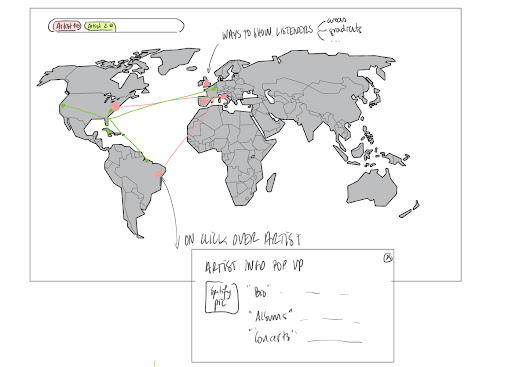 Artist 1 ⊗ Artist 2 ⊗
WAYS TO SHOW LISTENERS
areas
gradients
...
ON CLICK OVER ARTIST
ARTIST INFO POP UP
Spotify
pic
"Bio"
"Albums"
"Concerts"